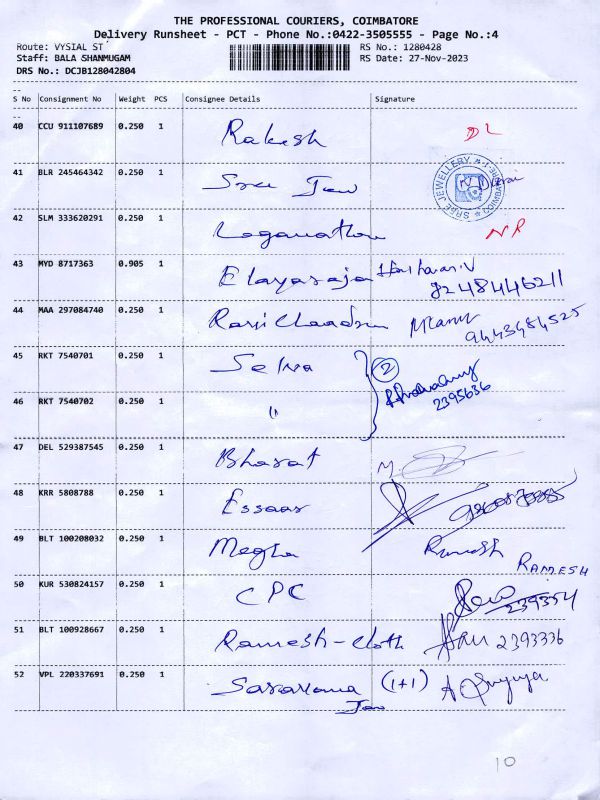 THE PROFESSIONAL COURIERS, COIMBATORE
Delivery Runsheet - PCT - Phone No.:0422-3505555 - Page No.:4
Route: VYSIAL ST RS No.: 1280428
Staff: BALA SHANMUGAM RS Date: 27-Nov-2023
DRS No.: DCJB128042804
S No Consignment No Weight PCS Consignee Details Signature
40 CCU 911107689 0.250 1 Rakesh DL
41 BLR 245464342 0.250 1 Sree Jew
SREE JEWELLERY
42 SLM 333620291 0.250 1 Loganathan NR
43 MYD 8717363 0.905 1 Elayaraja Hariharan.V
8248446211
44 MAA 297084740 0.250 1
9443484525
45 RKT 7540701 0.250 1 Selva 2
2395636
46 RKT 7540702 0.250 1 "
47 DEL 529387545 0.250 1 Bharat M.
48 KRR 5808788 0.250 1 Essaar
49 BLT 100208032 0.250 1 Megha Ramesh
RAMESH
50 KUR 530824157 0.250 1 CPC
239354
51 BLT 100928667 0.250 1 Ramesh-cloth 2393336
52 VPL 220337691 0.250 1 Saravana (1+1)
Jew
10